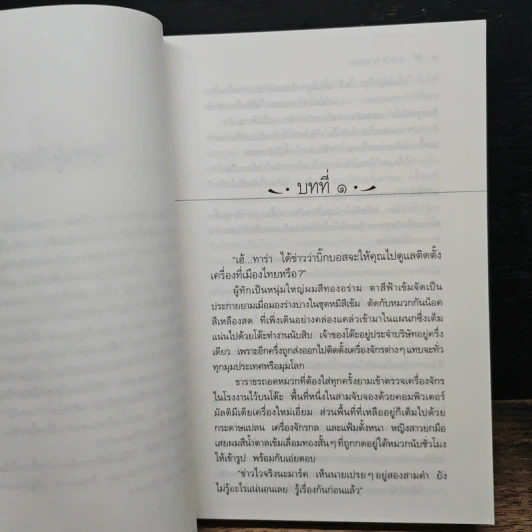 บทที่ ๑
"เฮ้...ทาร่า ได้ข่าวว่าบิ๊กบอสจะให้คุณไปดูแลติดตั้ง
เครื่องที่เมืองไทยหรือ?"
ผู้ทักเป็นหนุ่มใหญ่ผมสีทองอร่าม ตาสีฟ้าเข้มจัดเป็น
ประกายยามเมื่อมองร่างบางในชุดหมีสีเข้ม ตัดกับหมวกกันน็อค
สีเหลืองสด ที่เพิ่งเดินอย่างคล่องแคล่วเข้ามาในแผนกซึ่งเต็ม
แน่นไปด้วยโต๊ะทำงานนับสิบ เจ้าของโต๊ะอยู่ประจำบริษัทอยู่ครึ่ง
เดียว เพราะอีกครึ่งถูกส่งออกไปติดตั้งเครื่องจักรต่างๆ แทบจะทั่ว
ทุกมุมประเทศหรือมุมโลก
ธาราธรถอดหมวกที่ต้องใส่ทุกครั้งยามเข้าตรวจเครื่องจักร
ในโรงงานไว้บนโต๊ะ พื้นที่หนึ่งในสามจับจองด้วยคอมพิวเตอร์
มัลติมีเดียเครื่องใหม่เอี่ยม ส่วนพื้นที่ที่เหลืออยู่ก็เต็มไปด้วย
กระดาษแปลน เครื่องจักรกล และแฟ้มตั้งหนา หญิงสาวยกมือ
เสยผมสีน้ำตาลเข้มเลื่อมทองสั้นๆ ที่ถูกกดอยู่ใต้หมวกนับชั่วโมง
ให้เข้ารูป พร้อมกับเอ่ยตอบ
"ข่าวไวจริงนะมาร์ค เห็นนายเปรยๆ อยู่สองสามคำ ยัง
ไม่รู้อะไรแน่นอนเลย รู้เรื่องกันก่อนแล้ว"